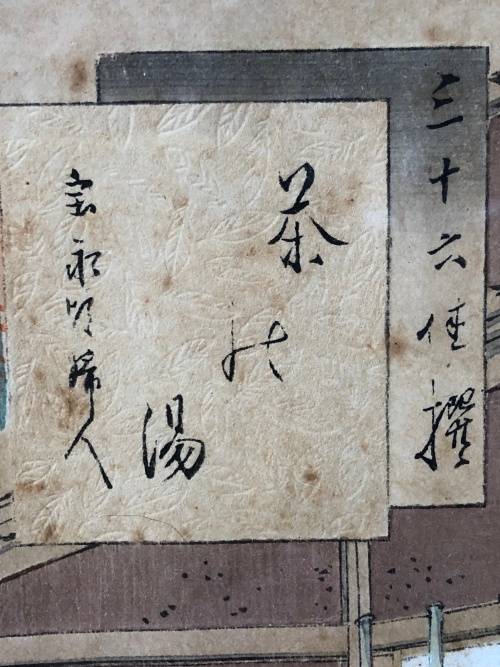 三十六佳撰
茶の湯
宝永頃婦人